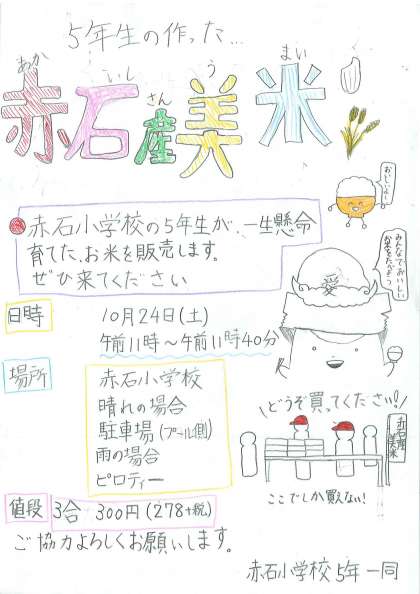 5年生の作った…
あか いし さん う まい
赤石産美米
おいしいよ〜
赤石小学校の5年生が、一生懸命
育てた、お米を販売します。
ぜひ来てください
みんなでおいしい
お米をたべよう
愛
日時
10月24日(土)
午前11時〜午前11時40分
場所
赤石小学校
晴れの場合
駐車場(プール側)
雨の場合
ピロティー
\どうぞ買ってください!/
赤石産
美米
ここでしか買えない!
値段
3合 300円(278+税)
ご協力よろしくお願いします。
赤石小学校5年一同